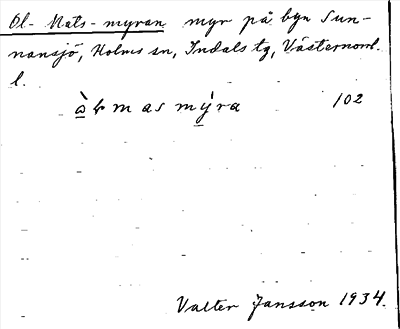 Ol-Mats-myran myr på byn Sun-
nansjö, Holms sn, Indals tg, Västernorrl.
l.
102
Valter Jansson 1934.